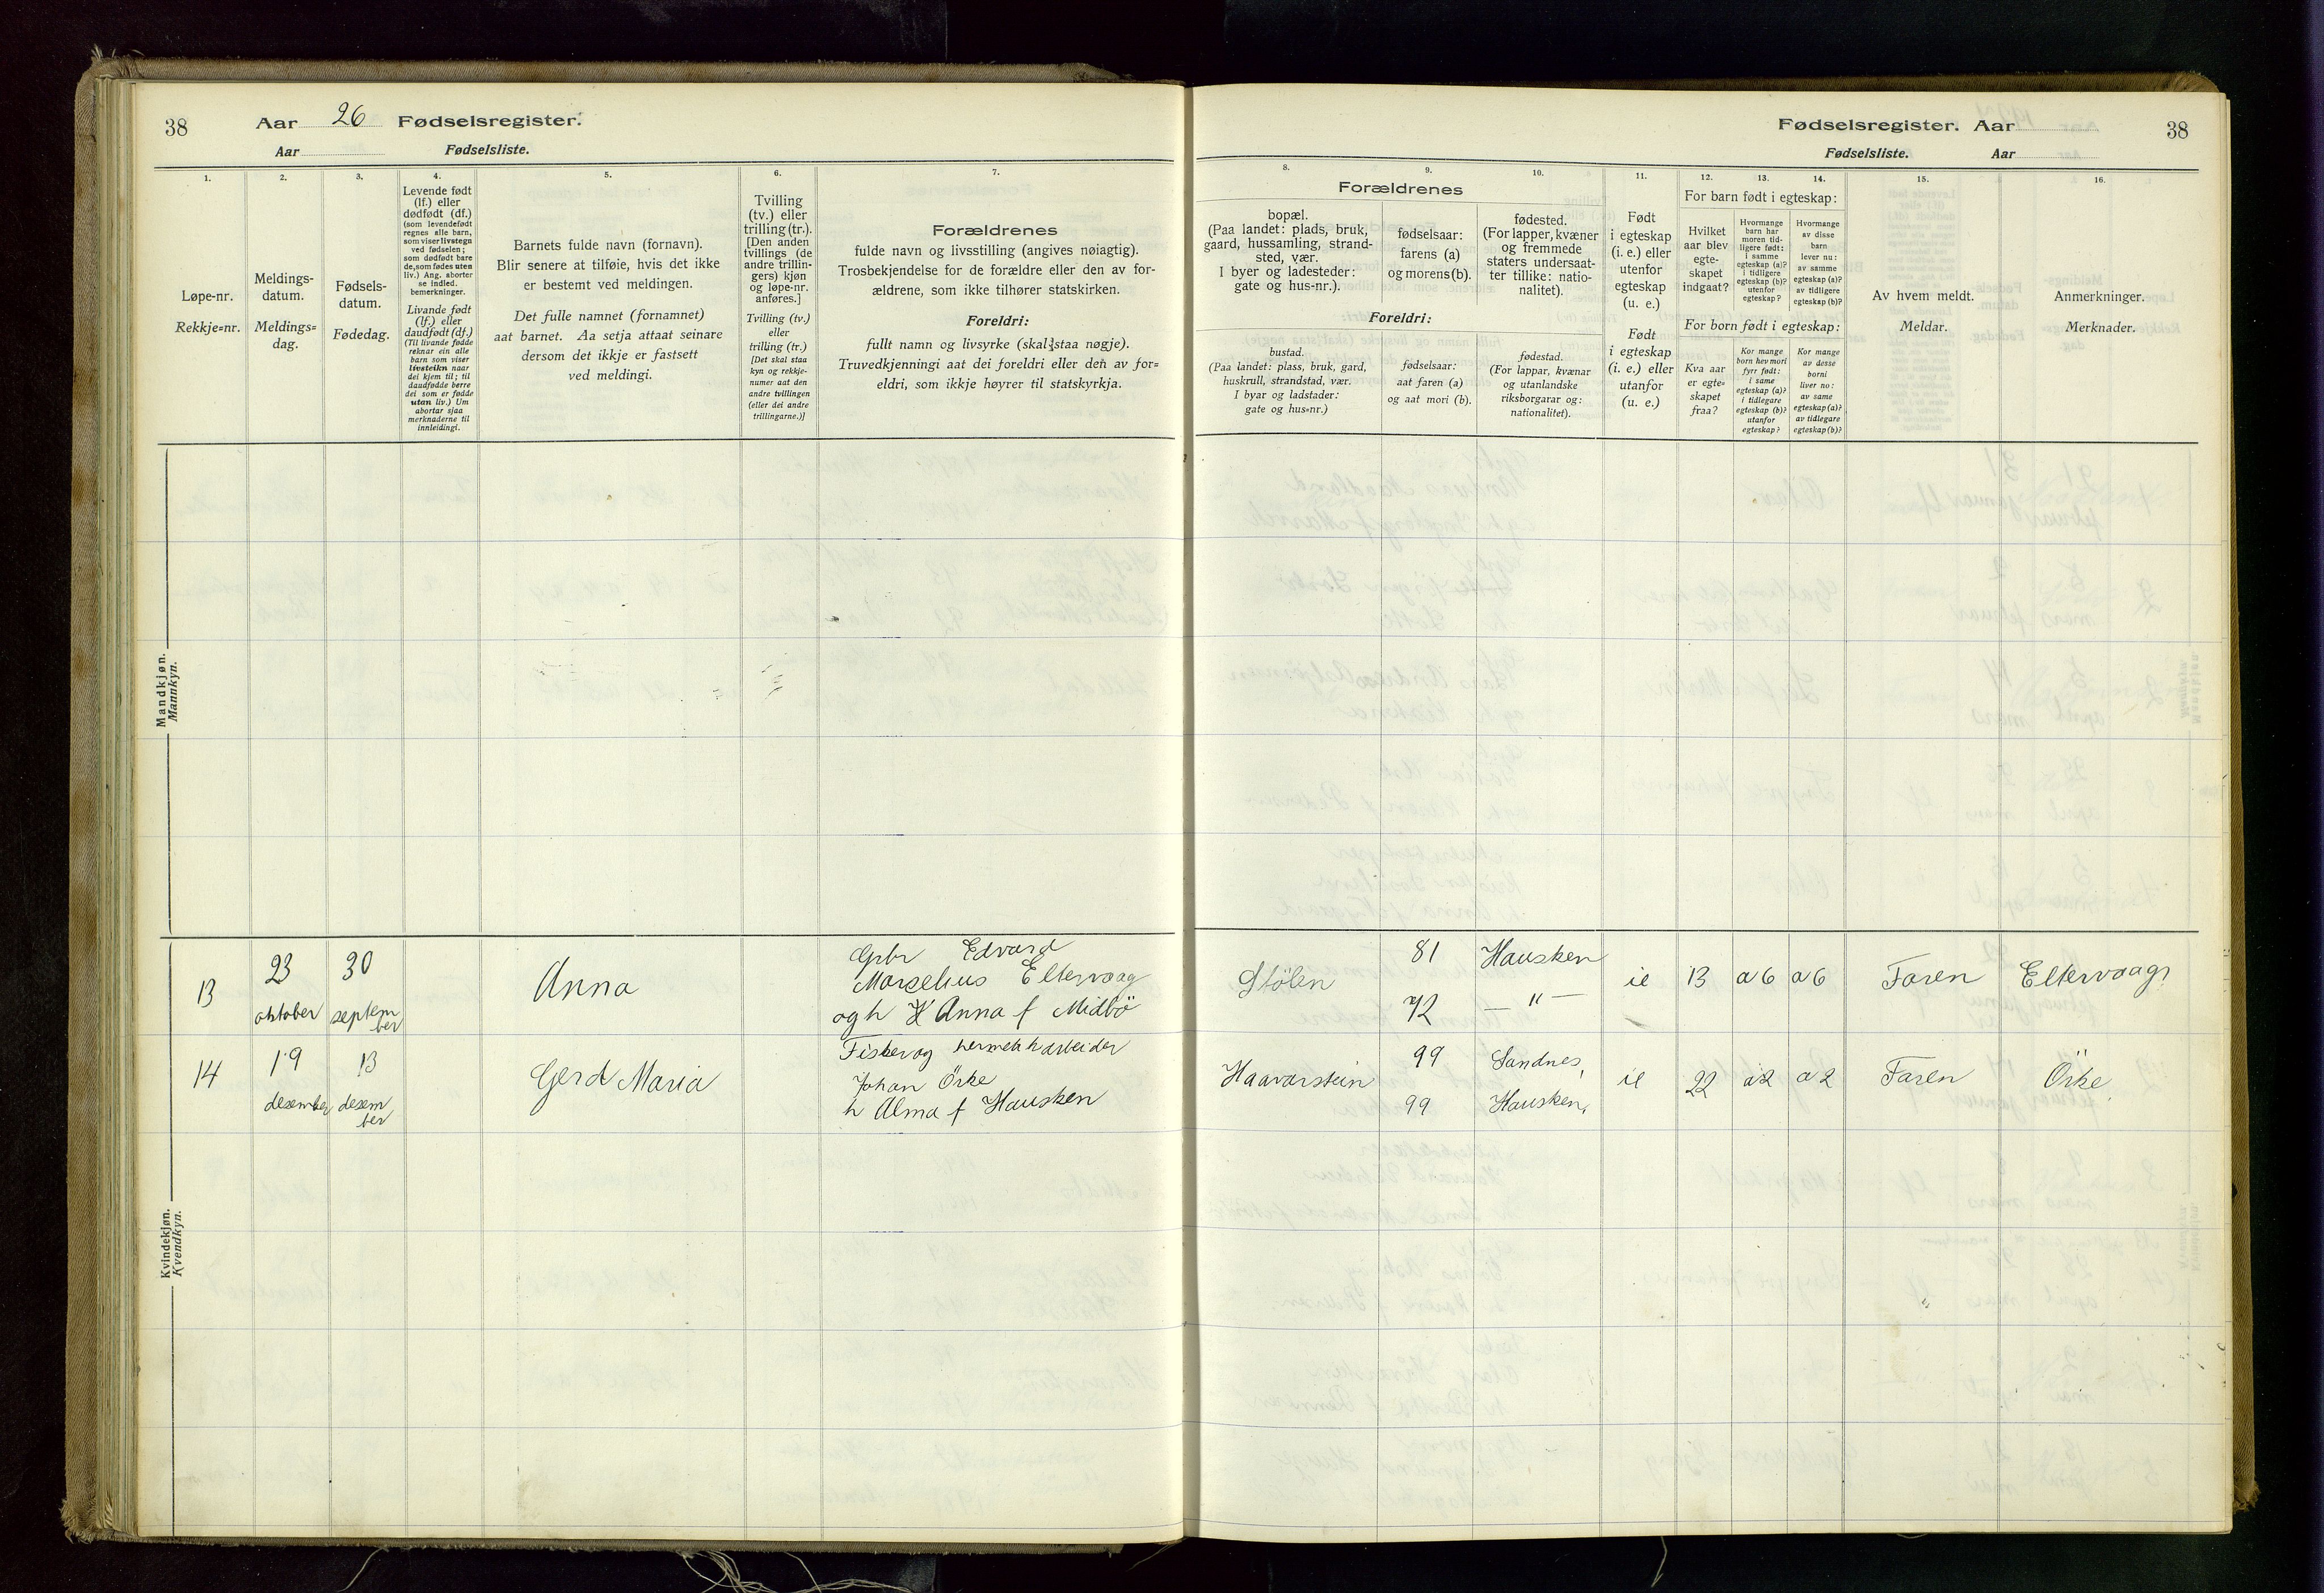 38 Aar 26 Fødselsregister.
Aar Fødselsliste.
1.
2.
3.
4.
5.
6.
7.
Løpe-nr.
Rekkje=nr.
Meldings-
datum.
Meldings=
dag.
Fødsels-
datum.
Fødedag.
Levende født
(lf.) eller
dødfødt (df.)
(som levendefødt
regnes alle barn,
som viser livstegn
ved fødselen;
som dødfødt bare
de, som fødes uten
liv.) Ang. aborter
se indled.
bemerkninger.
Livande født
(lf.) eller
daudfødt (df.)
(Til livande fødde
reknar ein alle
barn som viser
livsteikn naar
dei kjem til; til
daudfødde berre
dei som er fødde
utan liv.) Um
abortar sjaa
merknaderne til
innleidingi.
Barnets fulde navn (fornavn).
Blir senere at tilføie, hvis det ikke
er bestemt ved meldingen.
Det fulle namnet (fornamnet)
aat barnet. Aa setja attaat seinare
dersom det ikkje er fastsett
ved meldingi.
Tvilling
(tv.) eller
trilling (tr.).
[Den anden
tvillings (de
andre trillin-
gers) kjøn
og løpe-nr.
anføres.]
Tvilling (tv.)
eller
trilling (tr.)
[Det skal staa
kyn og rekkje-
numer aat den
andre tvillingen
(eller dei andre
trillingarne.)]
Forældrenes
fulde navn og livsstilling (angives nøiagtig).
Trosbekjendelse for de forældre eller den av for-
ældrene, som ikke tilhører statskirken.
Foreldri:
fullt namn og livsyrke (skal staa nøgje).
Truvedkjenningi aat dei foreldri eller den av for=
eldri, som ikkje høyrer til statskyrkja.
Mandkjøn.
Mannkyn.
13
23
oktober
30
septem
ber
Anna
Gbr Edvard
Marselius Eltervaag
og h H Anna f Midbö
14
19
desember
13
desem
ber
Gerd Maria
Johan Örke
h Alma f Hausken
Kvindekjøn.
Kvendkyn.
Fødselsregister. Aar 38
Fødselsliste. Aar
8.
9.
10.
11.
12.
13.
14.
15.
16.
Forældrenes
bopæl.
(Paa landet: plads, bruk,
gaard, hussamling, strand-
sted, vær.
I byer og ladesteder:
gate og hus-nr.).
fødselsaar:
farens (a)
og morens (b).
fødested.
(For lapper, kvæner
og fremmede
staters undersaat-
ter tillike: natio-
nalitet).
Foreldri:
bustad.
(Paa landet: plass, bruk, gard,
huskrull, strandstad, vær.
I byar og ladstader:
gate og hus=nr.)
fødselsaar:
aat faren (a)
og aat mori (b).
fødestad.
(For lappar, kvænar
og utanlandske
riksborgarar og:
nationalitet).
Født
i egteskap
(i. e.) eller
utenfor
egteskap
(u. e.)
Født
i egteskap
(i. e.) eller
utanfor
(u. e.)
For barn født i egteskap:
Hvilket
aar blev
egte-
skapet
indgaat?
Hvormange
barn har
moren tid-
ligere født:
i samme
egteskap (a)?
i tidligere
egteskap (b)?
utenfor
egteskap?
Hvormange
av disse
barn
lever nu:
av samme
egteskap (a)?
av tidligere
egteskap (b)?
For born født i egteskap:
Kva aar
er egte=
skapet
fraa?
Kor mange
born hev mori
fyrr født:
i same
egteskap (a)?
i tidlegare
egteskap (b)?
utanfor
egteskap?
Kor mange
av desse
borni
liver no:
av same
egteskap (a)?
av tidlegare
egteskap (b)?
Av hvem meldt.
Meldar.
Anmerkninger.
Merknader.
Stölen
81
72
Hausken
— " —
ie 13 a 6 a 6 Faren Eltervaag
Haavarstein
99
99
Sandnes,
Hausken,
ie 22 a 2 a 2 Faren Örke